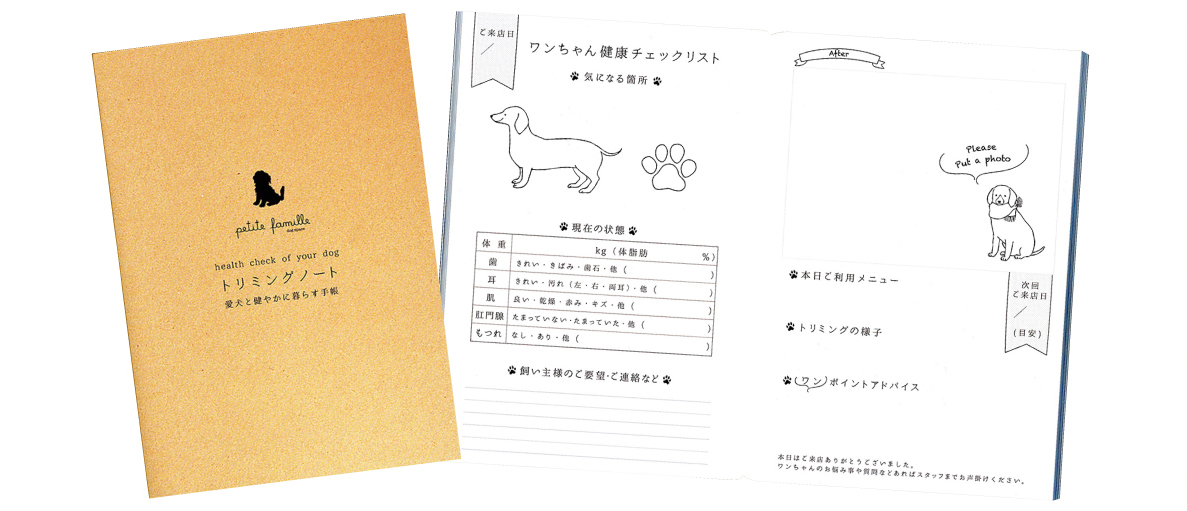 petite famille
dog space
health check of your dog
トリミングノート
愛犬と健やかに暮らす手帳
ご来店日
／
ワンちゃん健康チェックリスト
気になる箇所
現在の状態
体 重 kg（体脂肪 %）
歯 きれい・きばみ・歯石・他（ ）
耳 きれい・汚れ（左・右・両耳）・他（ ）
肌 良い・乾燥・赤み・キズ・他（ ）
肛門腺 たまっていない・たまっていた・他（ ）
もつれ なし・あり・他（ ）
飼い主様のご要望・ご連絡など
After
Please
Put a photo
本日ご利用メニュー
次回
ご来店日
／
（目安）
トリミングの様子
（ワン）ポイントアドバイス
本日はご来店ありがとうございました。
ワンちゃんのお悩み事や質問などあればスタッフまでお声掛けください。